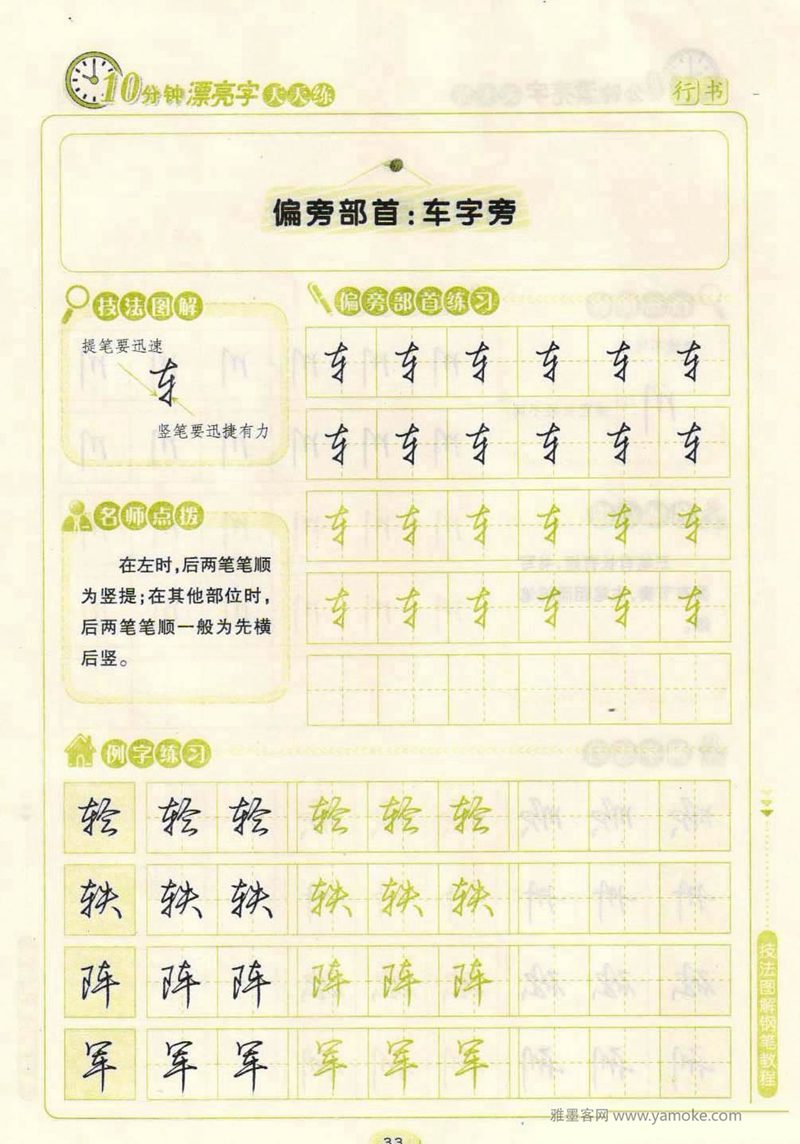 10分钟漂亮字天天练
行书
偏旁部首:车字旁
技法图解
提笔要迅速
车
竖笔要迅捷有力
名师点拨
在左时,后两笔笔顺
为竖提;在其他部位时,
后两笔笔顺一般为先横
后竖。
偏旁部首练习
车 车 车 车 车 车
车 车 车 车 车 车
车 车 车 车 车 车
车 车 车 车 车 车
例字练习
轻 轻 轻 轻 轻 轻
轶 轶 轶 轶 轶 轶
阵 阵 阵 阵 阵 阵
军 军 军 军 军 军
技法图解钢笔教程
雅墨客网 www.yamoke.com
33